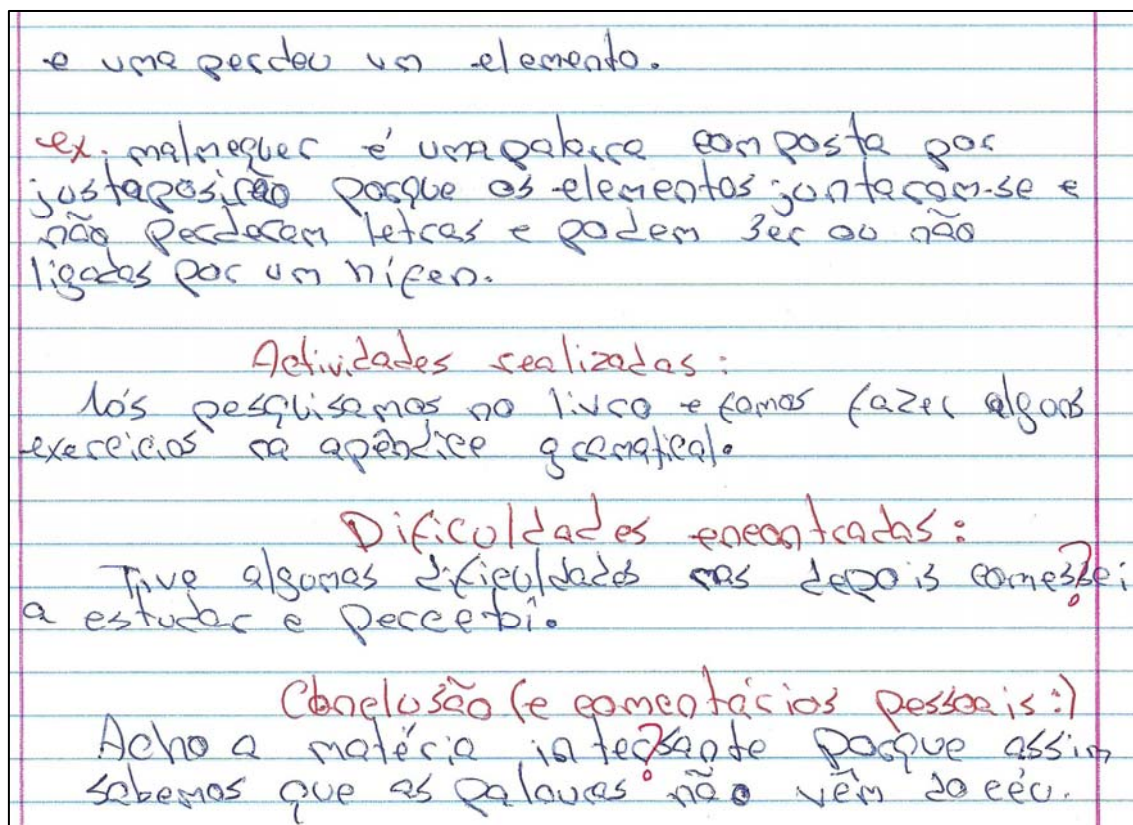 e uma perdeu um elemento.
ex: malmequer é uma palavra composta por
justaposição porque os elementos juntaram-se e
não perderam letras e podem ser ou não
ligadas por um hífen.
Actividades realizadas:
Nós pesquisamos no livro e fomos fazer alguns
exercicios na apêndice gramatical.
Dificuldades encontradas:
Tive algumas dificuldades mas depois comessei
?
a estudar e percebi.
Conclusão (e comentários pessoais:)
Acho a matéria intersante porque assim
?
sabemos que as palavras não vêm do céu.